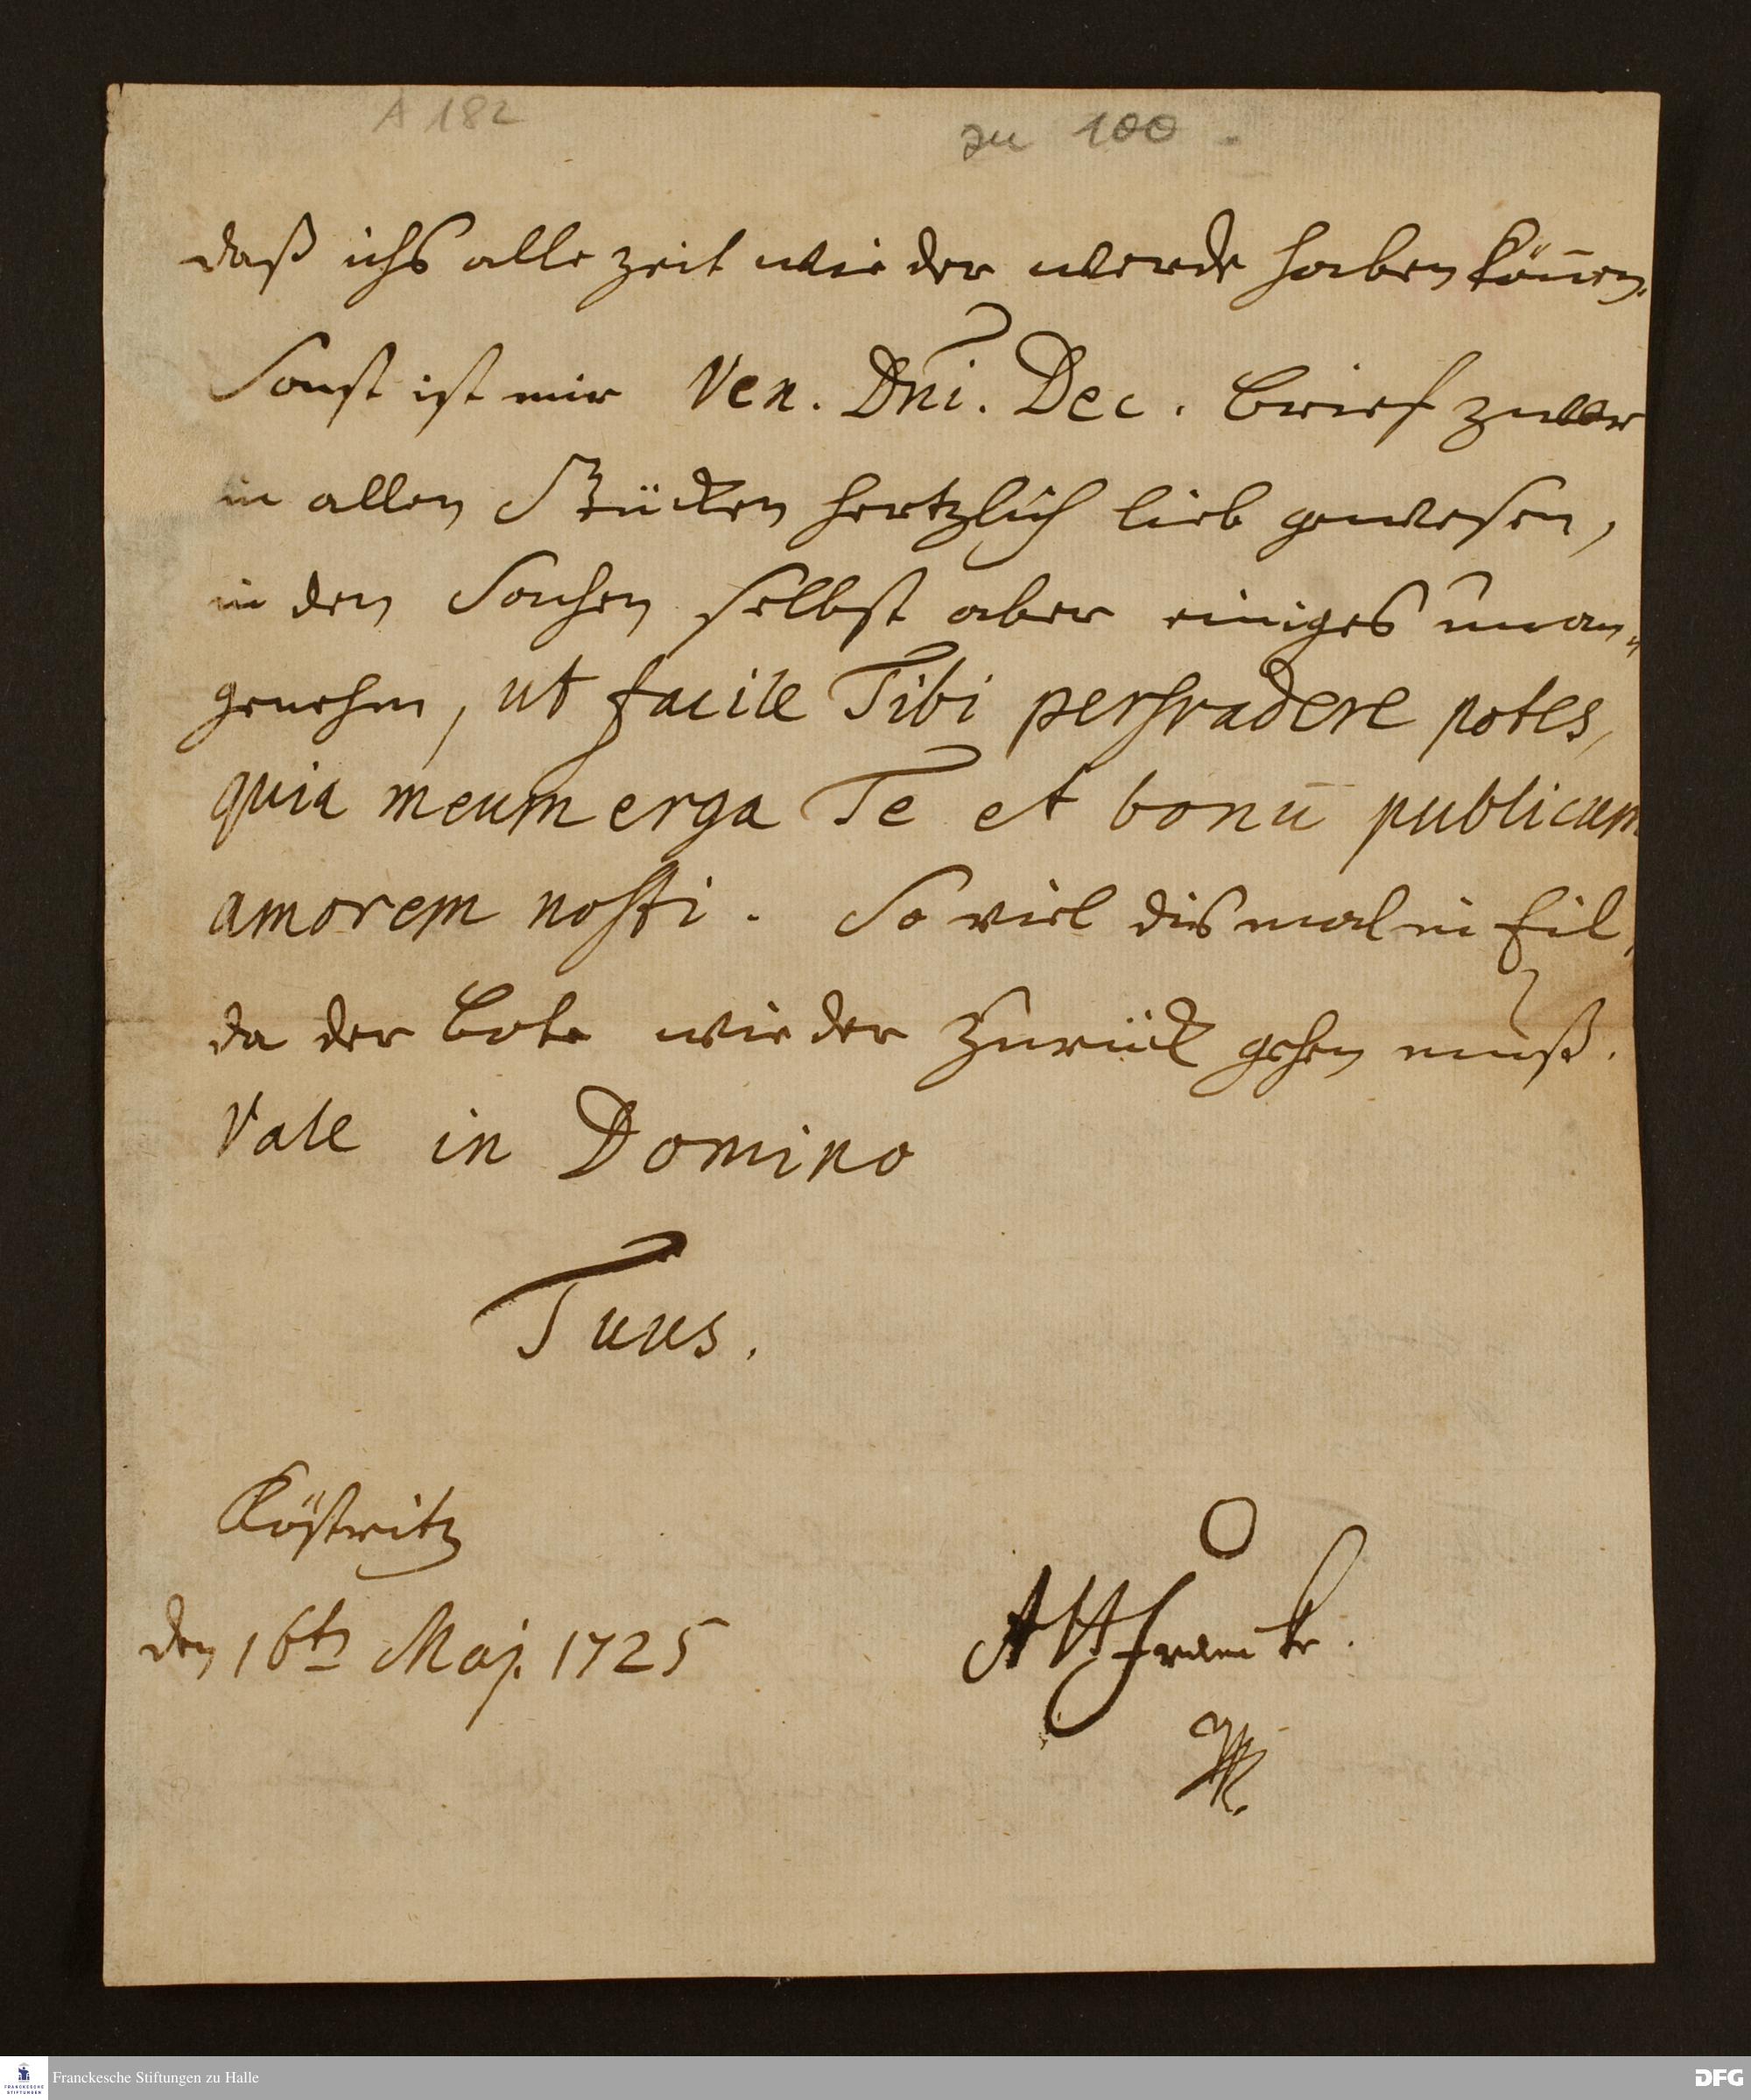 A 182
zu 100
daß ichs alle zeit wieder werde haben kön̄en.
Sonst ist mir Ven. Dn̄i. Dec. Brief zwar
in allen Stücken hertzlich lieb gewesen,
in den Sachen selbst aber einiges unan„
genehm, ut facile Tibi persvadere potes,
quia meum erga Te et bonū publicum
amorem nosti. So viel dismal in Eil,
da der Bote wieder zurück gehen muß.
Vale in Domino
Tuus.
Köstritz
den 16tn Maj. 1725
AHFrancke.
Franckesche Stiftungen zu Halle
FRANCKESCHE STIFTUNGEN
DFG